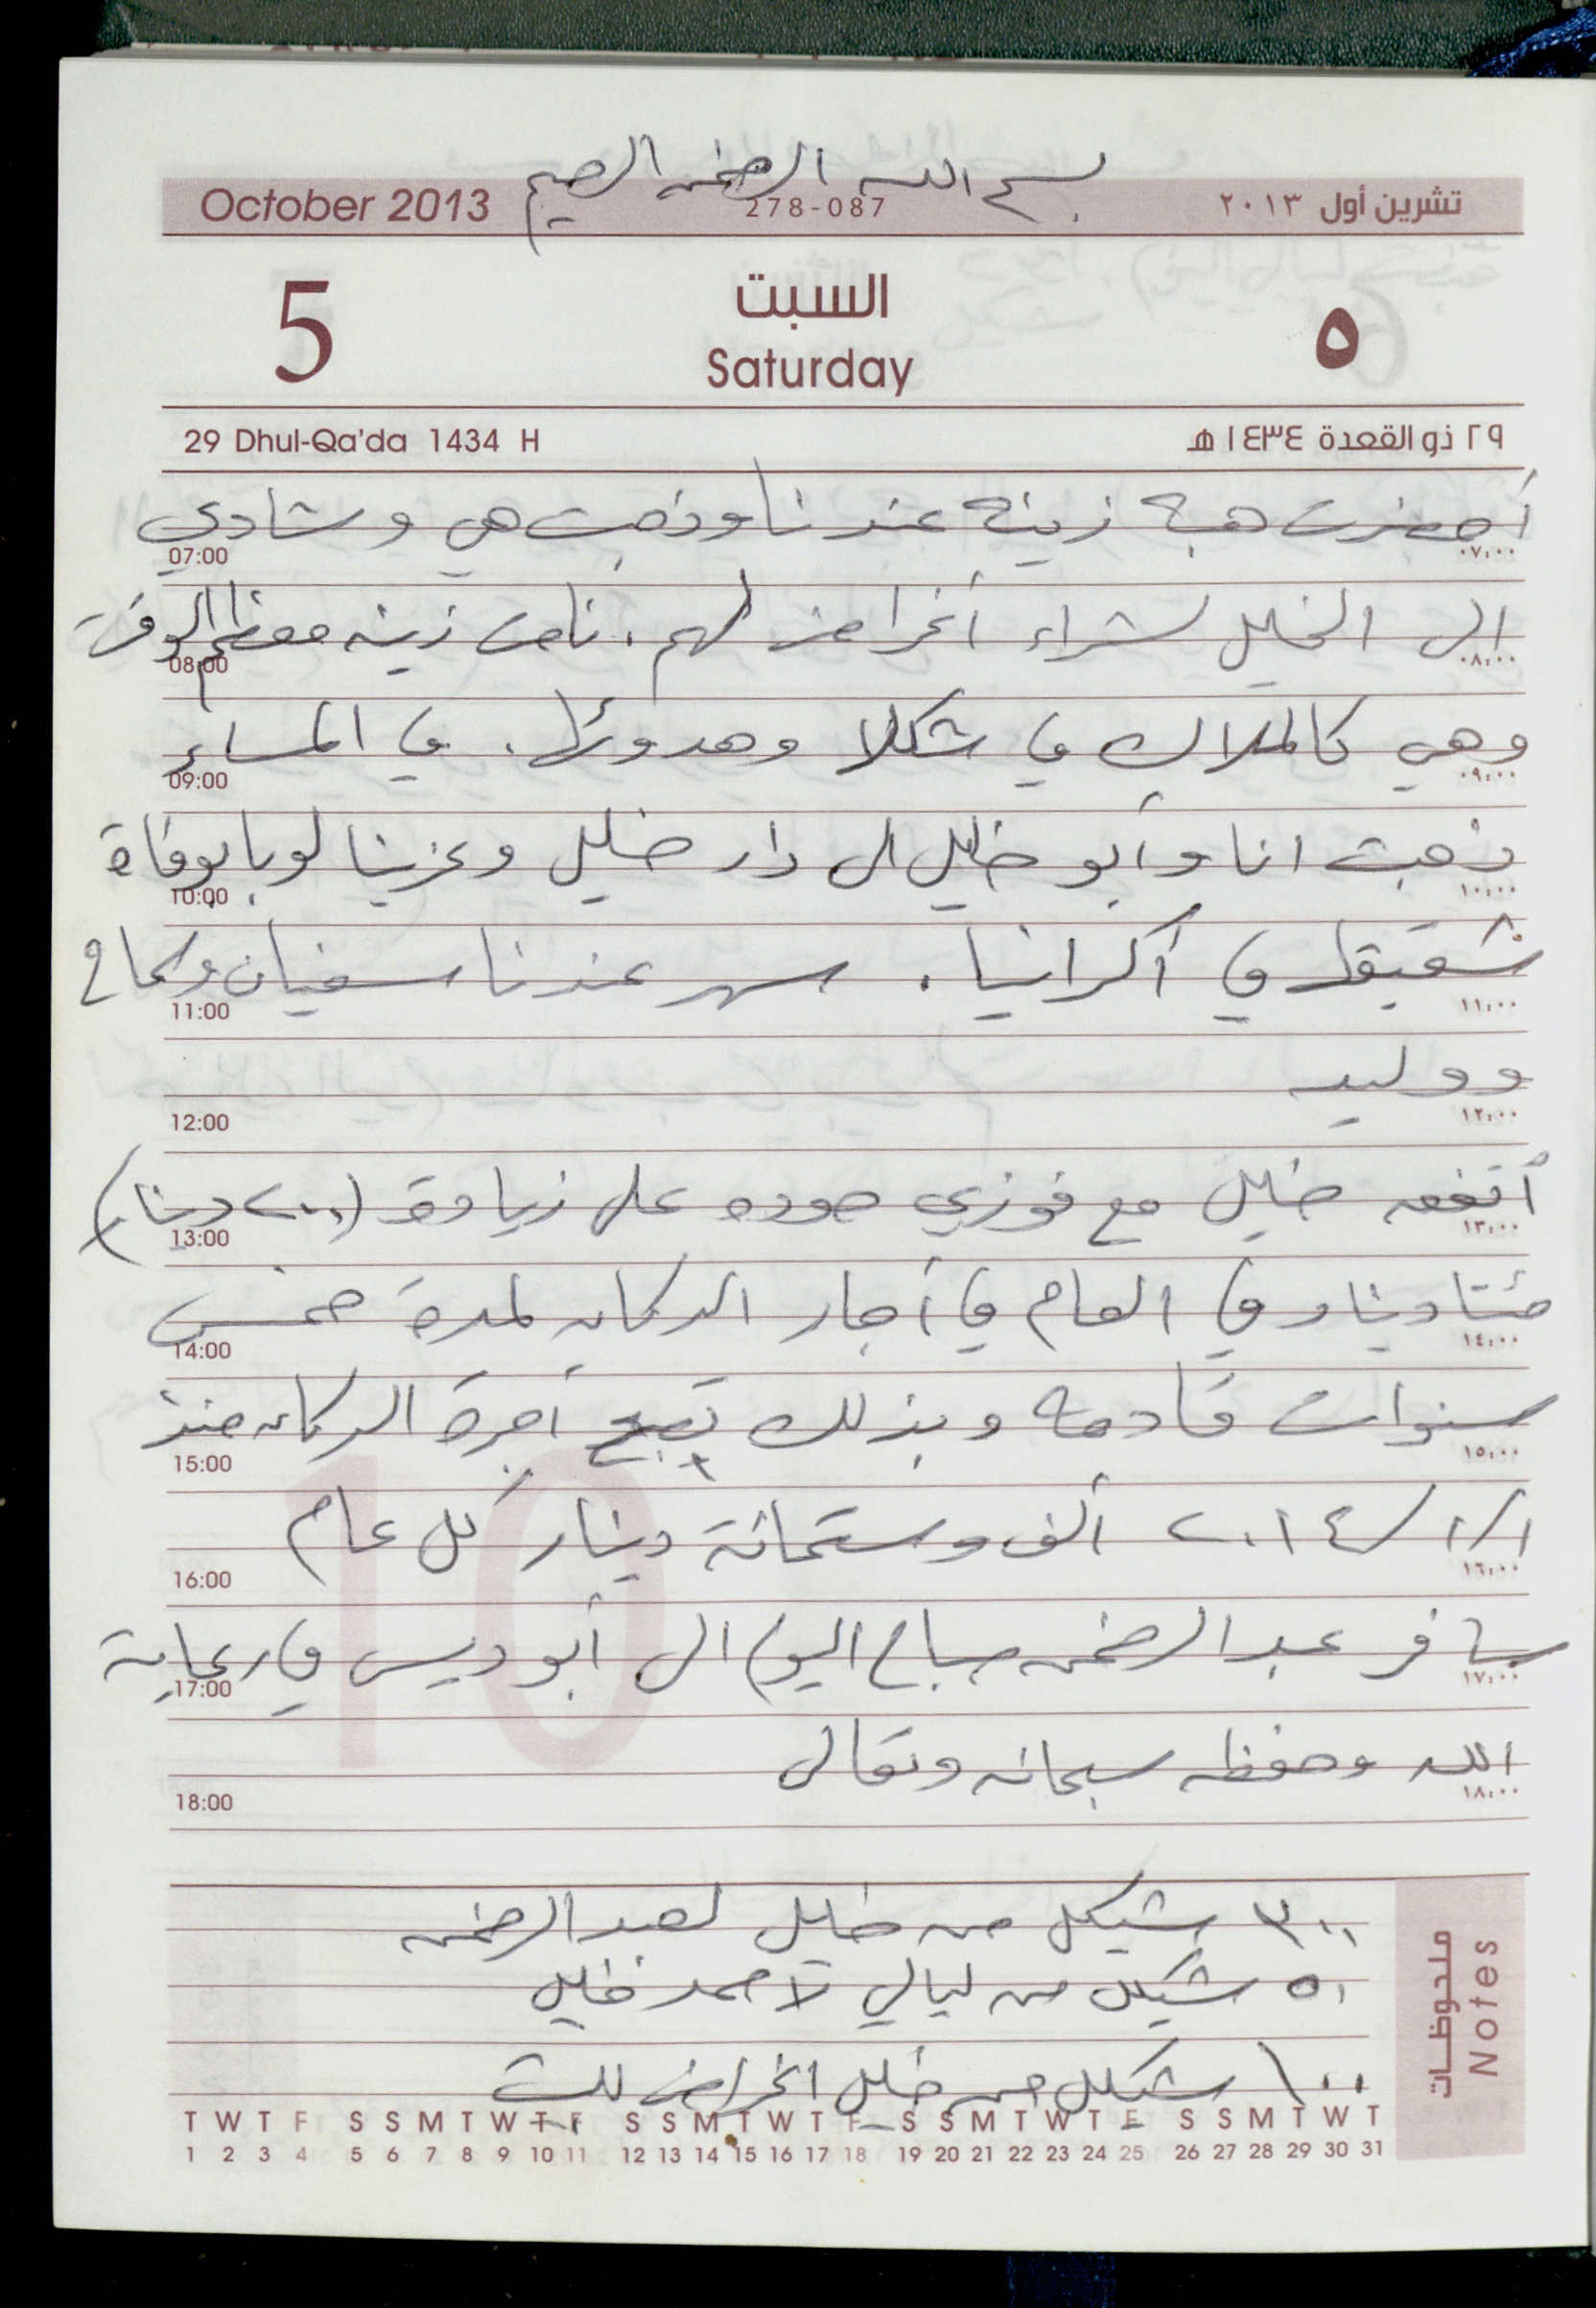 بسم الله الرحمن الرحيم
October 2013 278-087 تشرين أول ٢٠١٣
5 السبت ٥
Saturday
29 Dhul-Qa'da 1434 H ٢٩ ذو القعدة ١٤٣٤ هـ
أحضرت هبه زينه عندنا وذهبت هي وشادي
07:00 ٠٧:٠٠
الى الخليل لشراء أغراض لهم. نامت زينه معظم الوقت
08:00 ٠٨:٠٠
وهي كالملاك في شكلها وهدوئها. في المساء
09:00 ٠٩:٠٠
ذهبت انا وأبو خليل الى دار خليل وعزينا لوبا بوفاة
10:00 ١٠:٠٠
شقيقها في أكرانيا. سهر عندنا سفيان وكفاح
11:00 ١١:٠٠
ووليد
12:00 ١٢:٠٠
أتفق خليل مع فوزي حموده على زيادة (٢٠٠ دينار)
13:00 ١٣:٠٠
مئتا دينار في العام في أجار الدكان لمدة خمس
14:00 ١٤:٠٠
سنوات قادمه وبذلك تصبح أجرة الدكان منذ
15:00 ١٥:٠٠
١/١/٢٠١٤ ألف وستمائة دينار كل عام
16:00 ١٦:٠٠
سافر عبد الرحمن صباح اليوم الى أبو ديس في رعاية
17:00 ١٧:٠٠
الله وحفظه سبحانه وتعالى
18:00 ١٨:٠٠
٣٠٠ شيكل من خليل لعبد الرحمن
٥٠ شيكل من ليالي لأحمد خليل
١٠٠ شيكل من خليل اغراض للبيت
ملحوظات
Notes
T W T F S S M T W T F S S M T W T F S S M T W T F S S M T W T
1 2 3 4 5 6 7 8 9 10 11 12 13 14 15 16 17 18 19 20 21 22 23 24 25 26 27 28 29 30 31
10